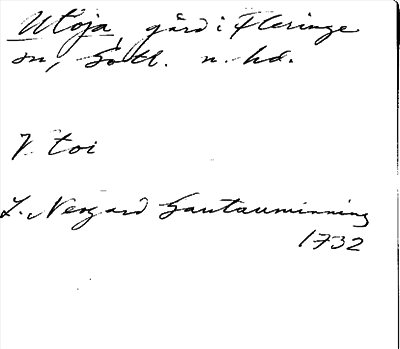 Utoja, gård i Fleringe
sn, Gotl. n. hd.
V toi
L. Nergard Gautauminning
1732